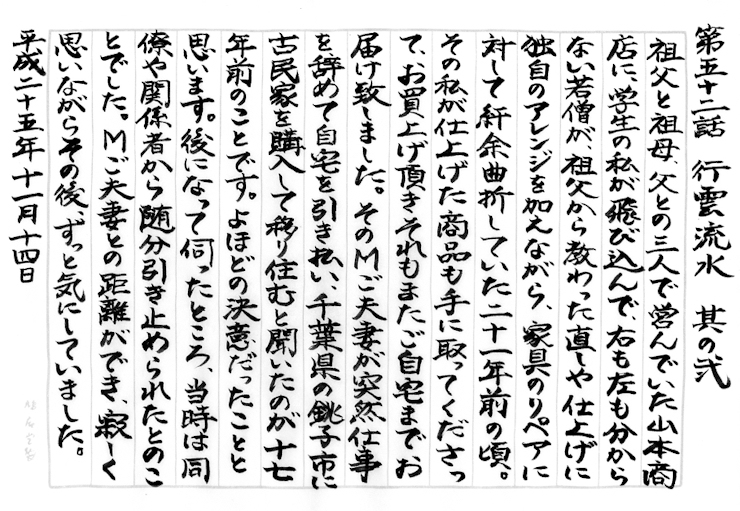 第五十二話　行雲流水　其の弐
祖父と祖母、父との三人で営んでいた山本商
店に、学生の私が飛び込んで、右も左も分から
ない若僧が、祖父から教わった直しや仕上げに
独自のアレンジを加えながら、家具のリペアに
対して紆余曲折していた二十一年前の頃。
その私が仕上げた商品も手に取ってくださっ
て、お買上げ頂きそれもまたご自宅までお
届け致しました。そのMご夫妻が突然仕事
を、辞めて自宅を引き払い、千葉県の銚子市に
古民家を購入して移り住むと聞いたのが十七
年前のことです。よほどの決意だったことと
思います。後になって伺ったところ、当時は同
僚や関係者から随分引き止められたとのこ
とでした。Mご夫妻との距離ができ、寂しく
思いながらその後、ずっと気にしていました。
平成二十五年十一月十四日